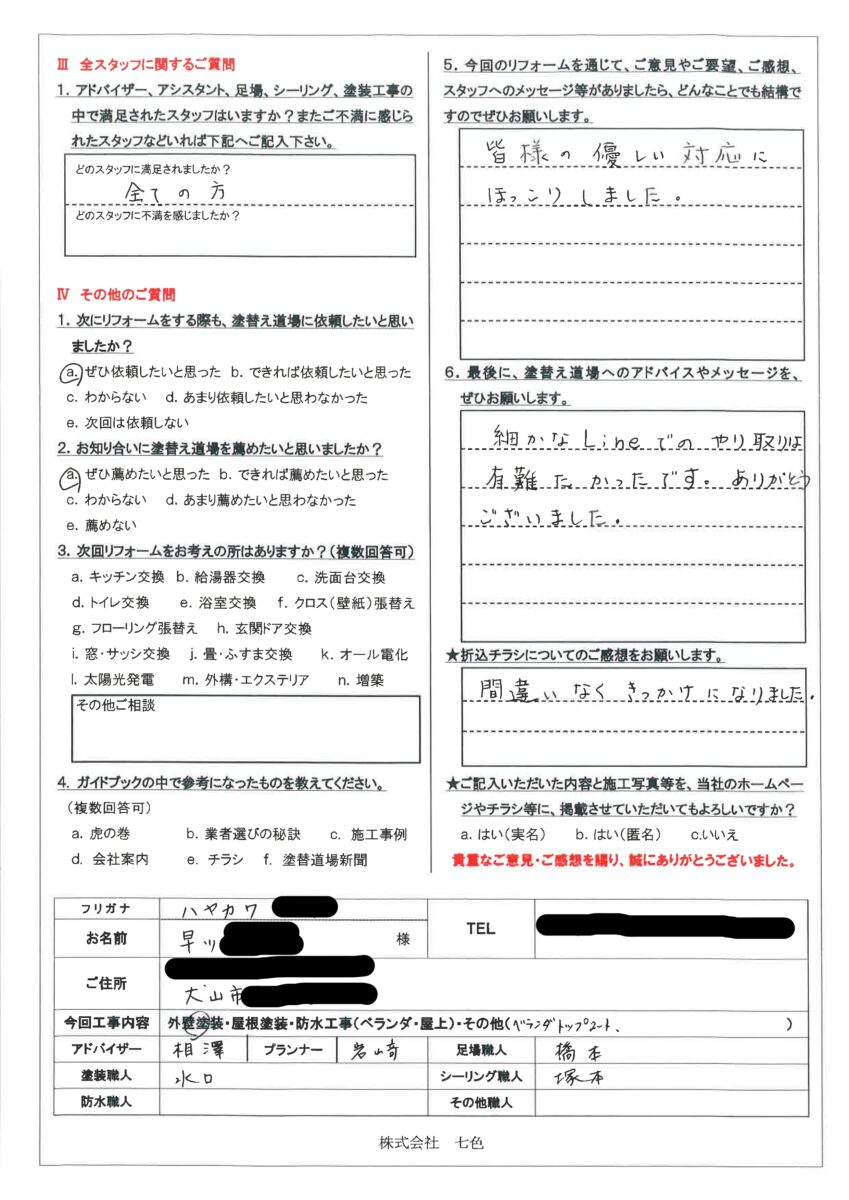 Ⅲ 全スタッフに関するご質問
1. アドバイザー、アシスタント、足場、シーリング、塗装工事の
中で満足されたスタッフはいますか?またご不満に感じら
れたスタッフなどいれば下記へご記入下さい。
どのスタッフに満足されましたか?
全ての方
どのスタッフに不満を感じましたか?
Ⅳ その他のご質問
1. 次にリフォームをする際も、塗替え道場に依頼したいと思い
ましたか?
a. ぜひ依頼したいと思った b. できれば依頼したいと思った
c. わからない d. あまり依頼したいと思わなかった
e. 次回は依頼しない
2. お知り合いに塗替え道場を薦めたいと思いましたか?
a. ぜひ薦めたいと思った b. できれば薦めたいと思った
c. わからない d. あまり薦めたいと思わなかった
e. 薦めない
3. 次回リフォームをお考えの所はありますか?(複数回答可)
a. キッチン交換 b. 給湯器交換 c. 洗面台交換
d. トイレ交換 e. 浴室交換 f. クロス(壁紙)張替え
g. フローリング張替え h. 玄関ドア交換
i. 窓・サッシ交換 j. 畳・ふすま交換 k. オール電化
l. 太陽光発電 m. 外構・エクステリア n. 増築
その他ご相談
4. ガイドブックの中で参考になったものを教えてください。
(複数回答可)
a. 虎の巻 b. 業者選びの秘訣 c. 施工事例
d. 会社案内 e. チラシ f. 塗替道場新聞
5. 今回のリフォームを通じて、ご意見やご要望、ご感想、
スタッフへのメッセージ等がありましたら、どんなことでも結構で
すのでぜひお願いします。
皆様の優しい対応に
ほっこりしました。
6. 最後に、塗替え道場へのアドバイスやメッセージを、
ぜひお願いします。
細かなLineでのやり取りは
有難たかったです。ありがとう
ございました。
★折込チラシについてのご感想をお願いします。
間違いなくきっかけになりました。
★ご記入いただいた内容と施工写真等を、当社のホームペー
ジやチラシ等に、掲載させていただいてもよろしいですか?
a. はい(実名) b. はい(匿名) c.いいえ
貴重なご意見・ご感想を賜り、誠にありがとうございました。
フリガナ ハヤカワ
お名前 早川 様 TEL
ご住所 犬山市
今回工事内容 外壁塗装・屋根塗装・防水工事(ベランダ・屋上)・その他(ベランダトップコート、 )
アドバイザー 相澤 プランナー 岩崎 足場職人 橋本
塗装職人 水口 シーリング職人 塚本
防水職人 その他職人
株式会社 七色